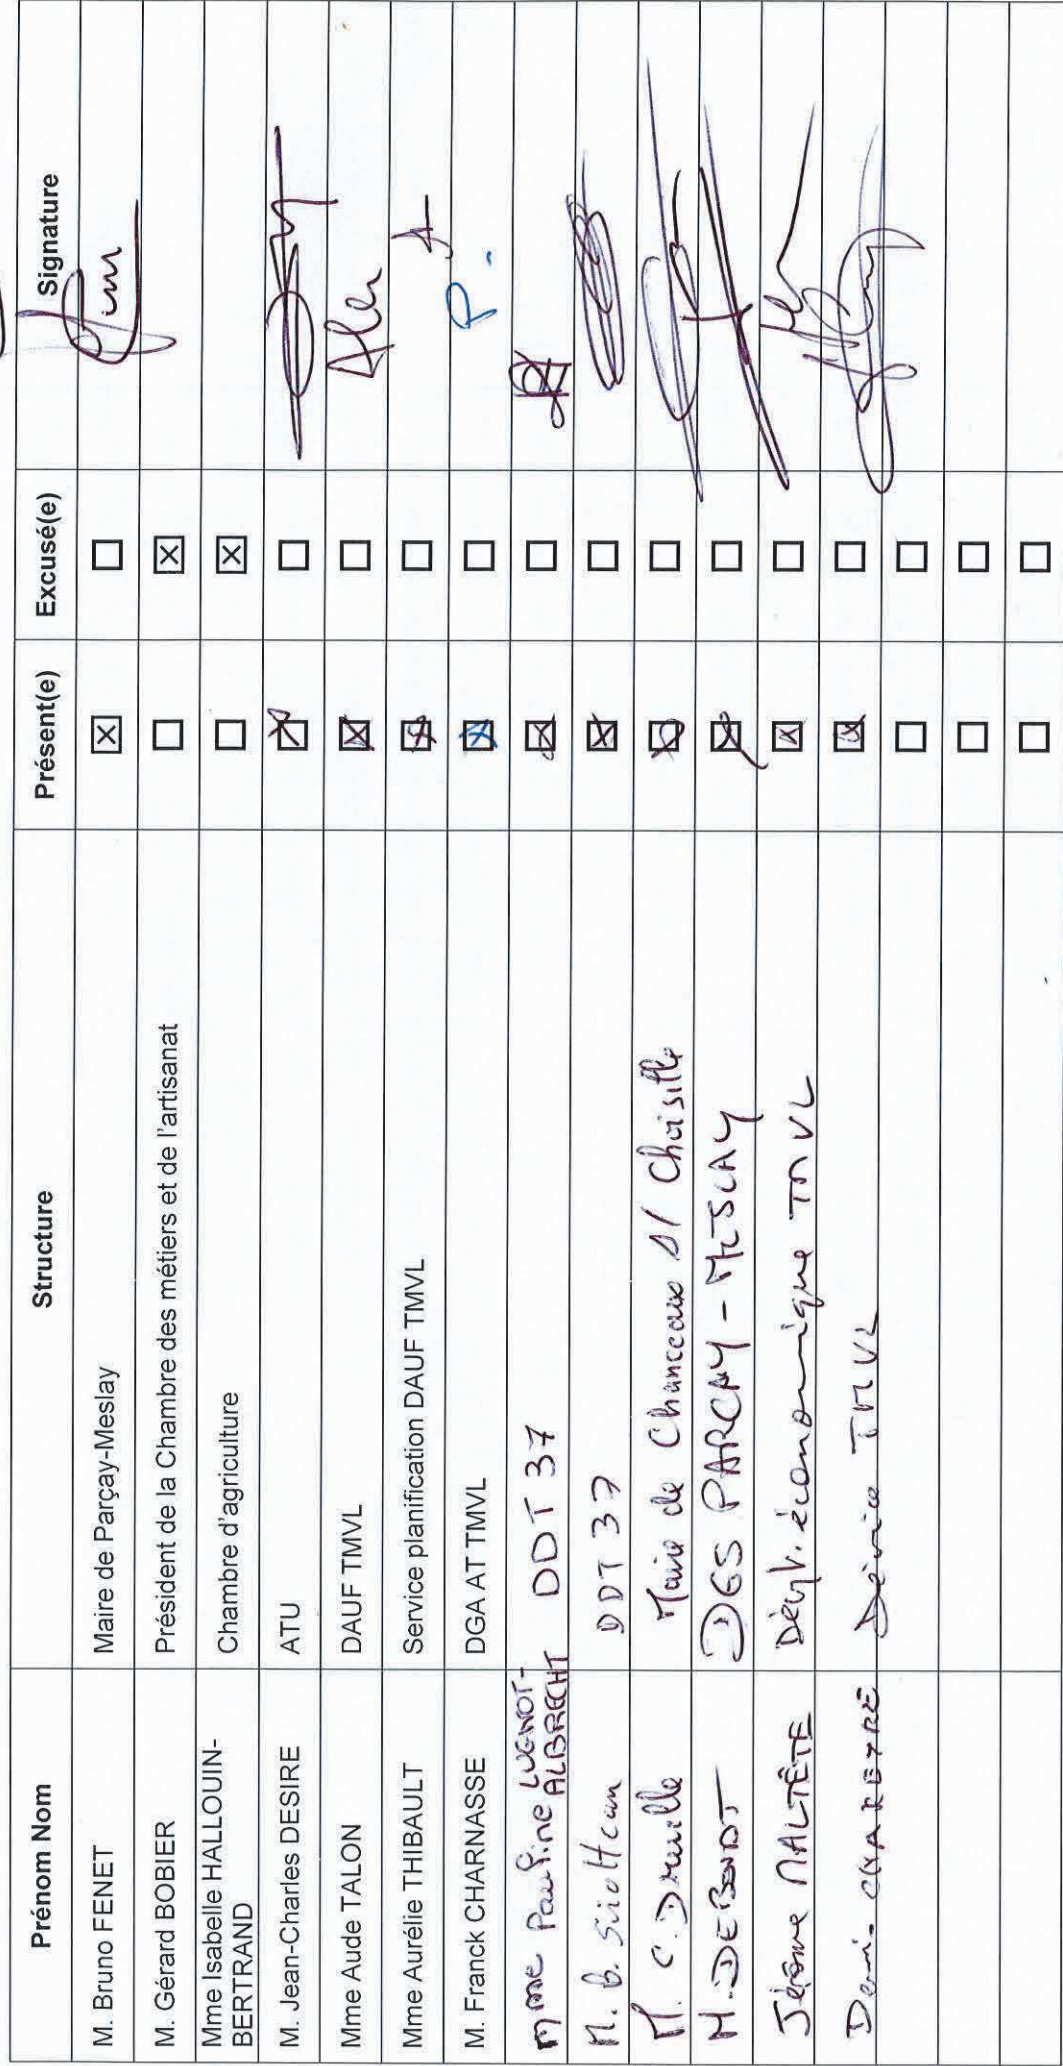 Prénom Nom Structure Présent(e) Excusé(e) Signature
M. Bruno FENET Maire de Parçay-Meslay
M. Gérard BOBIER Président de la Chambre des métiers et de l'artisanat
Mme Isabelle HALLOUIN-
BERTRAND Chambre d'agriculture
M. Jean-Charles DESIRE ATU
Mme Aude TALON DAUF TMVL
Mme Aurélie THIBAULT Service planification DAUF TMVL
M. Franck CHARNASSE DGA AT TMVL
mme Pauline LUGNOT-
ALBRECHT DDT 37
M. B. DDT 37
M. C. Drouelle Maire de Chanceaux s/ Choisille
M. DEBONDT DGS PARCAY-MESLAY
Jérôme MALTÊTE Dévpt. économique TMVL
CHAREYRE TMVL